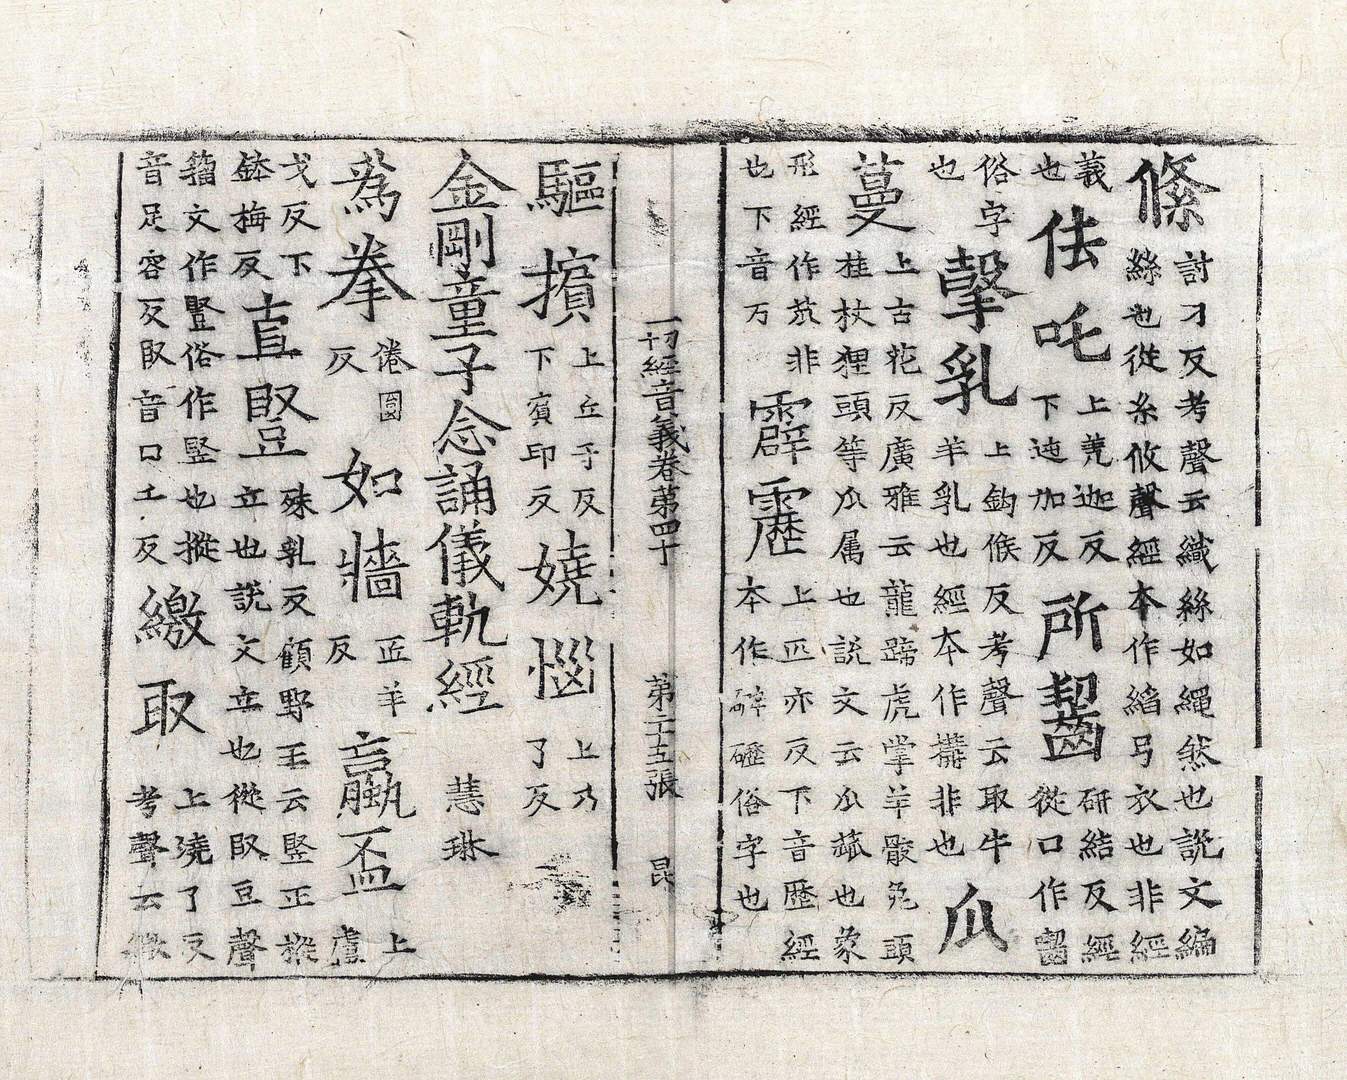 絛 討刀反考聲云織絲如繩然也說文編
絲也從糸攸聲經本作縚弓衣也非經
義也 佉吒 上羌迦反下迍加反 所齧 研結反經從口作嚙
俗字也 㝅乳 上鉤候反考聲云取牛羊乳也經本作構非也 瓜
蔓 上古花反廣雅云龍蹄虎掌羊骹兔頭
桂杖狸頭等瓜属也說文云瓜蓏也象
形經作苽非也下音万 霹靂 上匹亦反下音歷經本作礔礰俗字也
一切經音義卷第四十 第二十五張 昆
驅擯 上丘于反下賓印反 嬈惱 上乃了反
金剛童子念誦儀軌經 慧琳
為拳 倦圎反 如牆 匠羊反 言羸盃 上盧
戈反下鉢梅反 直竪 殊乳反顧野王云竪正㩳立也說文立也從臤豆聲
籀文作豎俗作竪也㩳
音足容反臤音口工反 繳取 上澆了反考聲云